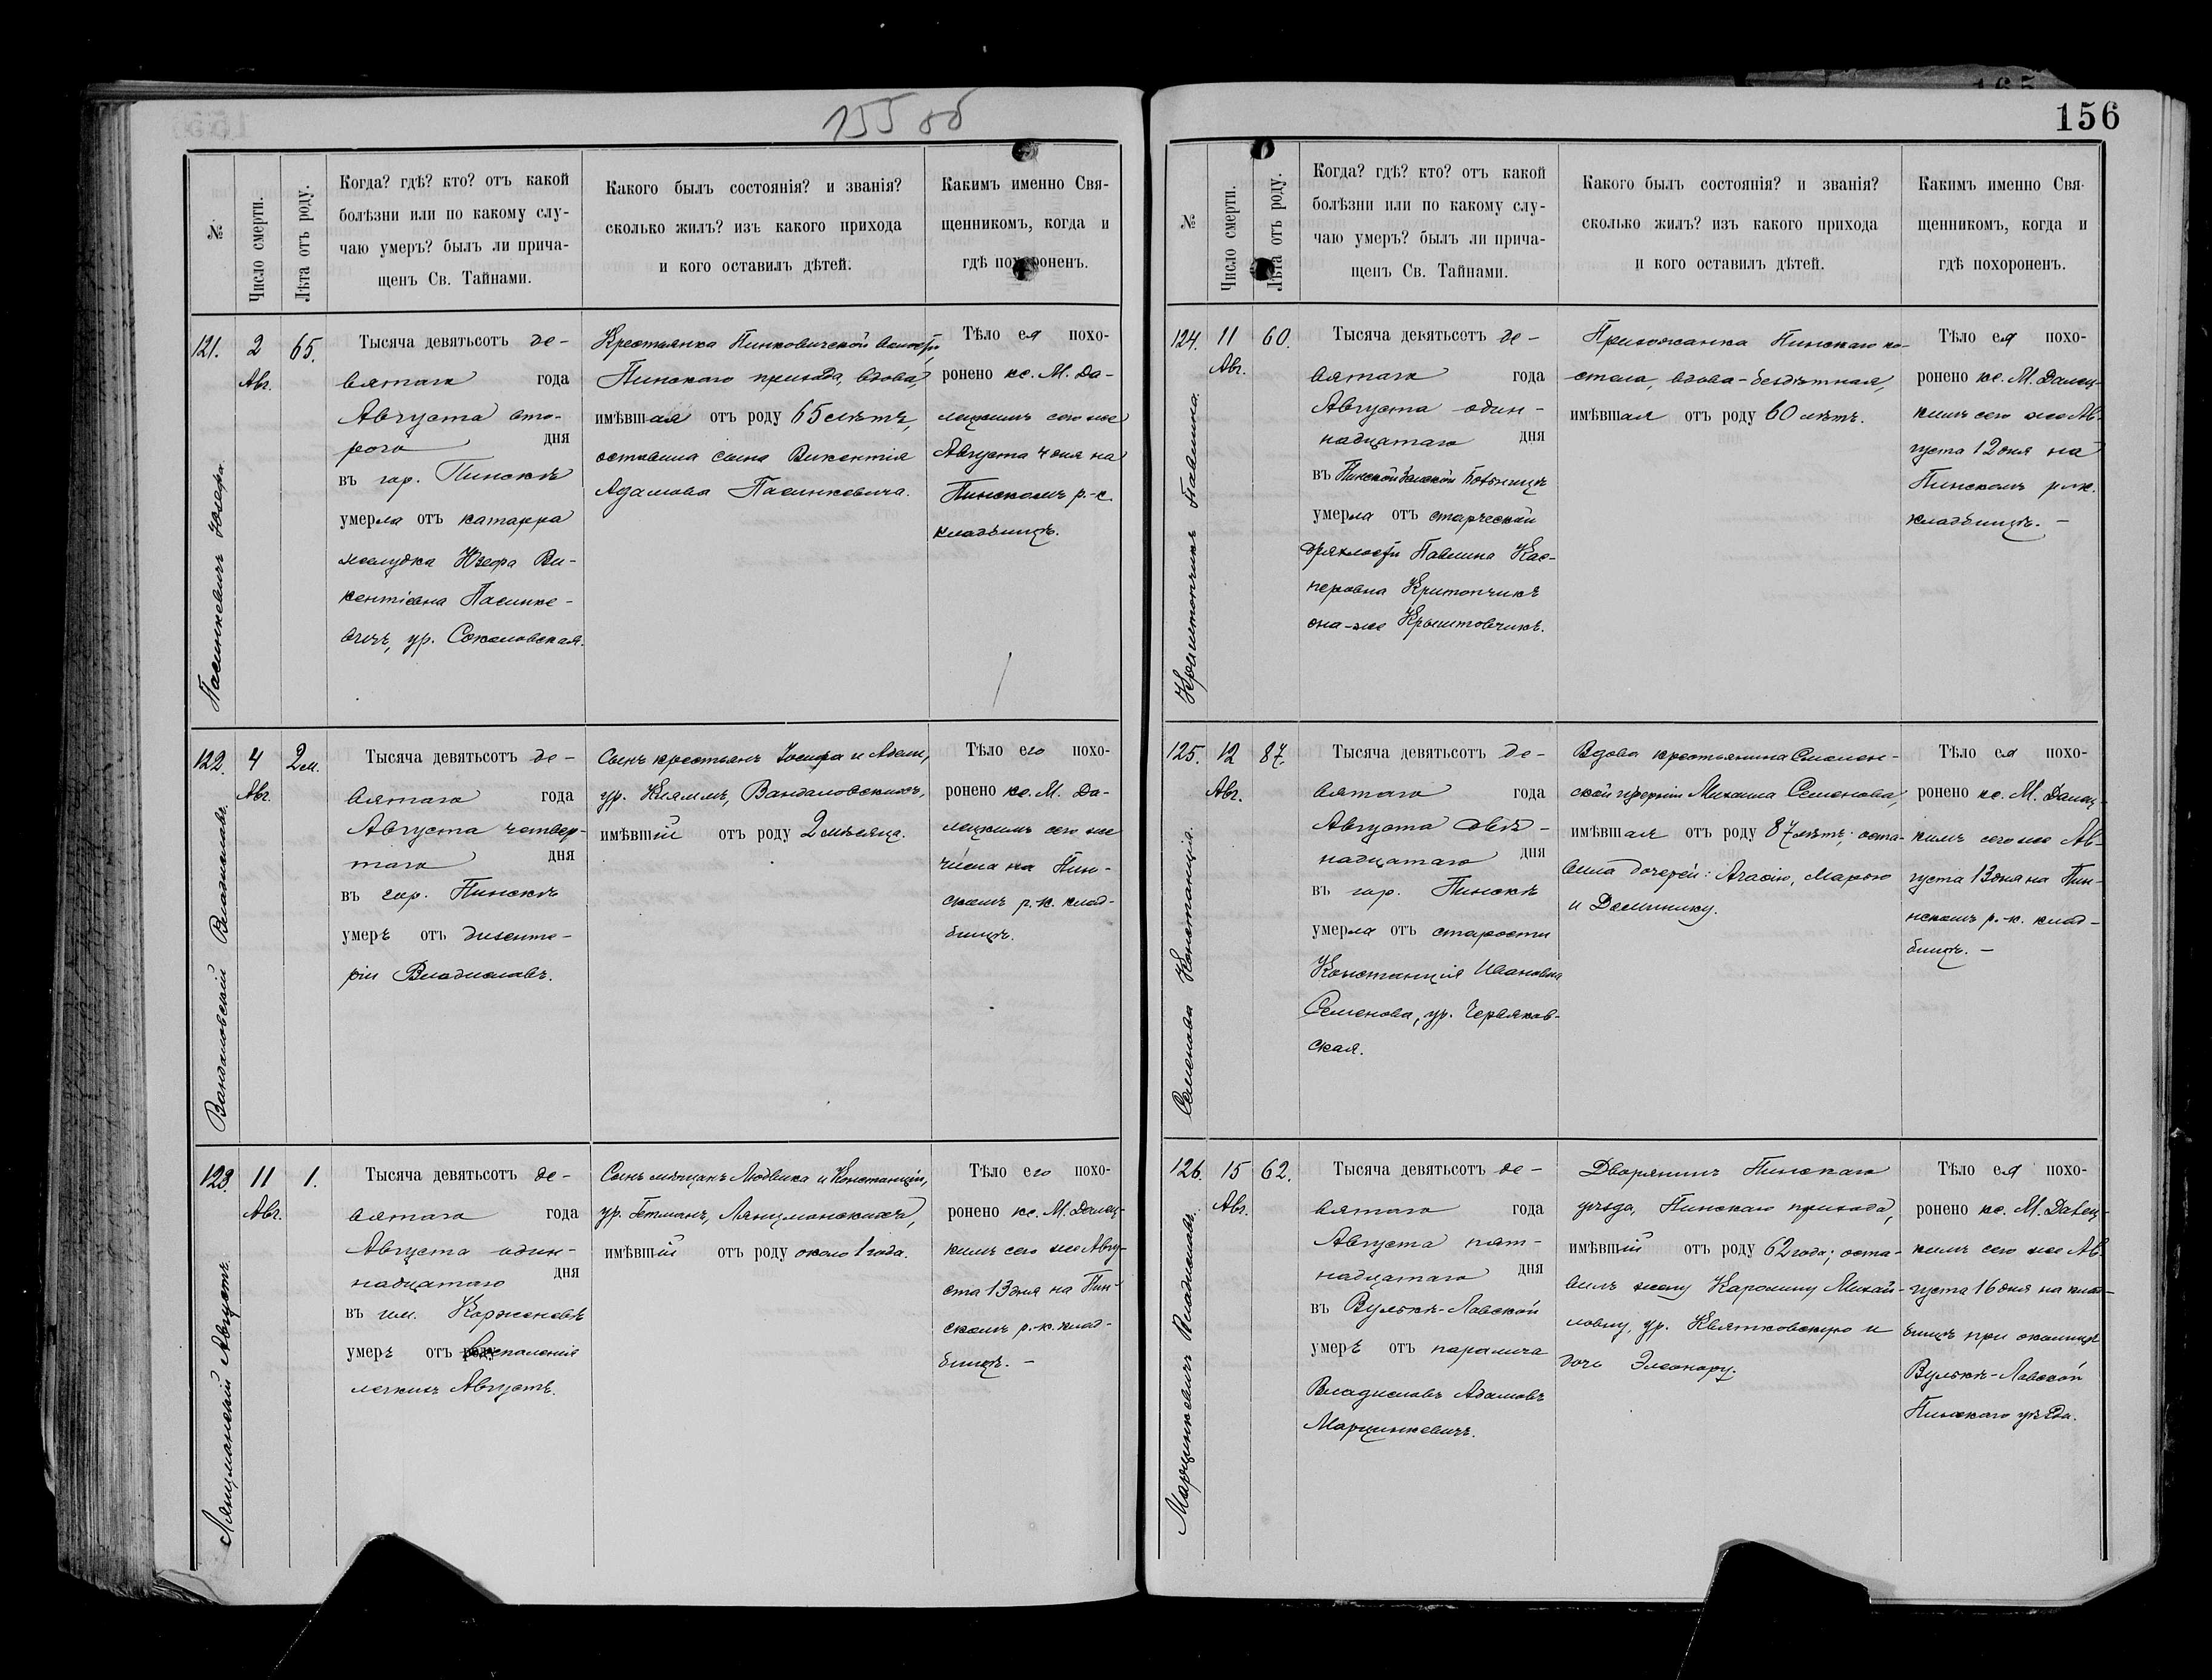 155 об
№.
Число смерти.
Лѣта отъ роду.
Когда? гдѣ? кто? отъ какой
болѣзни или по какому слу-
чаю умеръ? былъ ли прича-
щенъ Св. Тайнами.
Какого былъ состоянія? и званія?
сколько жилъ? изъ какого прихода
и кого оставилъ дѣтей.
Какимъ именно Свя-
щенникомъ, когда и
гдѣ похороненъ.
121.
Пасинкевичъ Юзефа.
2
Авг.
65.
Тысяча девятьсотъ де-
вятаго года
Августа вто-
рого дня
въ гор. Пинскѣ
умерла отъ катарра
желудка Юзефа Ви-
кентіевна Пасинке-
вичъ, ур. Соколовская.
Крестьянка Пинковичской волости,
Пинскаго прихода, вдова,
имѣвшая отъ роду 65 лѣтъ,
оставила сына Викентія
Адамова Пасинкевича.
Тѣло ея похо-
ронено кс. М. Да-
лецкимъ сего же
Августа 4 дня на
Пинскомъ р.-к.
кладбищѣ.
122.
Вандаловскій Владиславъ.
4
Авг.
2 м.
Тысяча девятьсотъ де-
вятаго года
Августа четвер-
таго дня
въ гор. Пинскѣ
умеръ отъ дизенте-
ріи Владиславъ.
Сынъ крестьянъ Іосифа и Адели,
ур. Вандаловскихъ,
имѣвшій отъ роду 2 мѣсяца.
Тѣло его похо-
ронено кс. М. Да-
лецкимъ сего же
числа на Пин-
скомъ р.-к. клад-
бищѣ.
123.
Лянцманскій Августъ.
11
Авг.
1.
Тысяча девятьсотъ де-
вятаго года
Августа один-
надцатаго дня
въ им. Корженевѣ
умеръ отъ воспаленія
легкихъ Августъ.
Сынъ мѣщанъ Людвика и Констанціи,
ур. Гетманъ, Лянцманскихъ,
имѣвшій отъ роду около 1 года.
Тѣло его похо-
ронено кс. М. Далец-
кимъ сего же Авгу-
ста 13 дня на Пин-
скомъ р.-к. клад-
бищѣ. –
156
№
Число смерти.
Лѣта отъ роду.
Когда? гдѣ? кто? отъ какой
болѣзни или по какому слу-
чаю умеръ? былъ ли прича-
щенъ Св. Тайнами.
Какого былъ состоянія? и званія?
сколько жилъ? изъ какого прихода
и кого оставилъ дѣтей.
Какимъ именно Свя-
щенникомъ, когда и
гдѣ похороненъ.
124.
Павлина.
11
Авг.
60.
Тысяча девятьсотъ де-
вятаго года
Августа один-
надцатаго дня
въ Пинской больницѣ
умерла отъ старческой
дряхлости Павлина Кас-
перовна Критопчикъ
она-же Крыштовчикъ.
Прихожанка Пинскаго ко-
стела, вдова-бездѣтная,
имѣвшая отъ роду 60 лѣтъ.
Тѣло ея похо-
ронено кс. М. Далец-
кимъ сего же Ав-
густа 12 дня на
Пинскомъ р.-к.
кладбищѣ. –
125.
Семенова Констанція.
12
Авг.
87.
Тысяча девятьсотъ де-
вятаго года
Августа двѣ-
надцатаго дня
въ гор. Пинскѣ
умерла отъ старости
Констанція Ивановна
Семенова, ур. Червяков-
ская.
Вдова крестьянина Смолен-
ской губерніи Михаила Семенова,
имѣвшая отъ роду 87 лѣтъ; оста-
вила дочерей: Агасію, Марію
и Доминику.
Тѣло ея похо-
ронено кс. М. Далец-
кимъ сего же Ав-
густа 13 дня на Пин-
нскомъ р.-к. клад-
бищѣ. –
126.
Марцинкевичъ Владиславъ.
15
Авг.
62.
Тысяча девятьсотъ де-
вятаго года
Августа пят-
надцатаго дня
въ Вулькѣ-Лавской
умеръ отъ паралича
Владиславъ Адамовъ
Марцинкевичъ.
Дворянинъ Пинскаго
уѣзда, Пинскаго прихода,
имѣвшій отъ роду 62 года; оста-
вилъ жену Каролину Михай-
ловну, ур. Квятковскую и
дочь Элеонору.
Тѣло ея похо-
ронено кс. М. Далец-
кимъ сего же Ав-
густа 16 дня на клад-
бищѣ при околицѣ
Вулькѣ-Лавской
Пинскаго уѣзда.